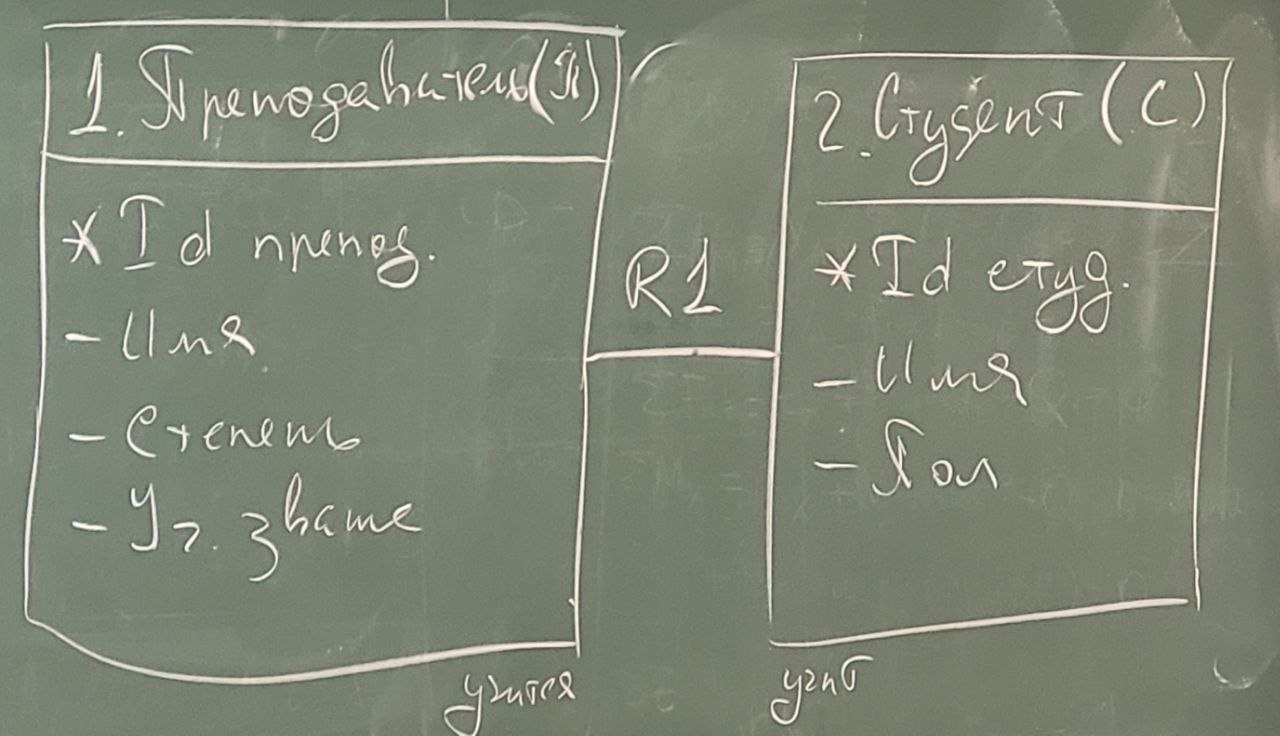 1. Преподаватель (П)
* Id препод.
- Имя
- Степень
- Уч. звание
R1
2. Студент (С)
* Id студ.
- Имя
- Пол
учится
учит